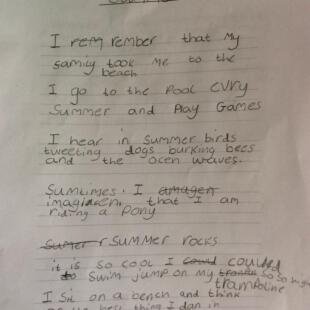 I remember that My
family took me to the
beach
I go to the Pool evry
Summer and Play Games
I hear in Summer birds
tweeting dogs burking bees
and the ocen waves.
Sumtimes I amagen
that I am
riding a Pony
Sumer SUMMER rocks
it is so cool I could could
to swim jump on my so so high
trampoline
I Sit on a bench and think
thing I dan in